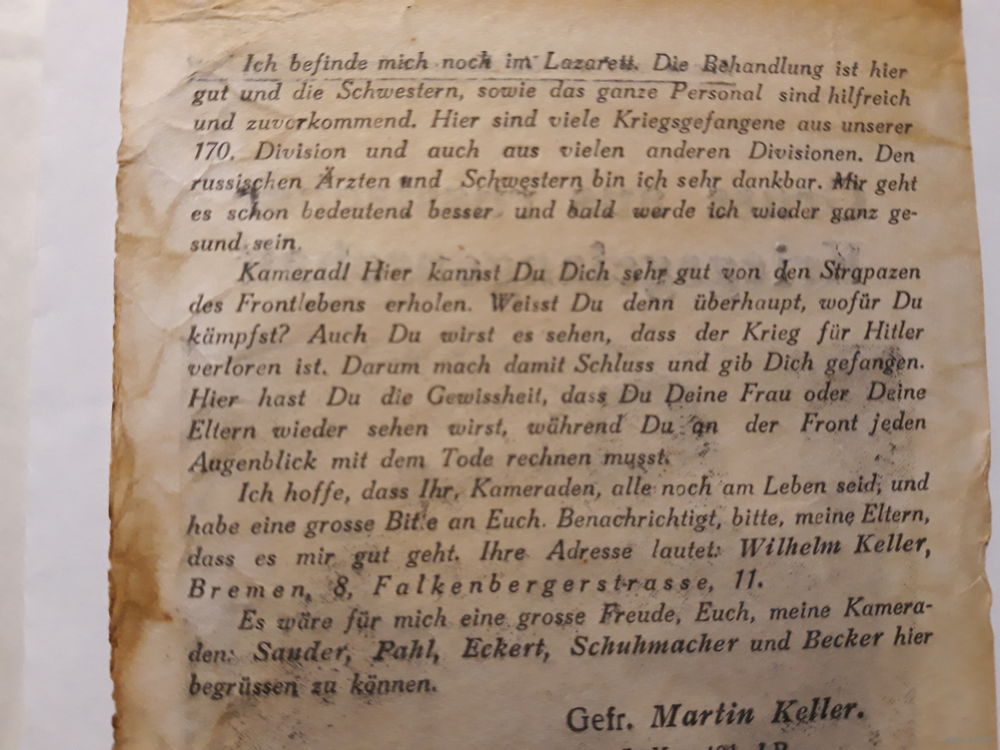 Ich befinde mich noch im Lazarett. Die Behandlung ist hier
gut und die Schwestern, sowie das ganze Personal sind hilfreich
und zuvorkommend. Hier sind viele Kriegsgefangene aus unserer
170. Division und auch aus vielen anderen Divisionen. Den
russischen Ärzten und Schwestern bin ich sehr dankbar. Mir geht
es schon bedeutend besser und bald werde ich wieder ganz ge-
sund sein.
Kamerad! Hier kannst Du Dich sehr gut von den Strapazen
des Frontlebens erholen. Weisst Du denn überhaupt, wofür Du
kämpfst? Auch Du wirst es sehen, dass der Krieg für Hitler
verloren ist. Darum mach damit Schluss und gib Dich gefangen.
Hier hast Du die Gewissheit, dass Du Deine Frau oder Deine
Eltern wieder sehen wirst, während Du an der Front jeden
Augenblick mit dem Tode rechnen musst.
Ich hoffe, dass Ihr, Kameraden, alle noch am Leben seid, und
habe eine grosse Bitte an Euch. Benachrichtigt, bitte, meine Eltern,
dass es mir gut geht. Ihre Adresse lautet: Wilhelm Keller,
Bremen, 8, Falkenbergerstrasse, 11.
Es wäre für mich eine grosse Freude, Euch, meine Kamera-
den: Sander, Pahl, Eckert, Schuhmacher und Becker hier
begrüssen zu können.
Gefr. Martin Keller.